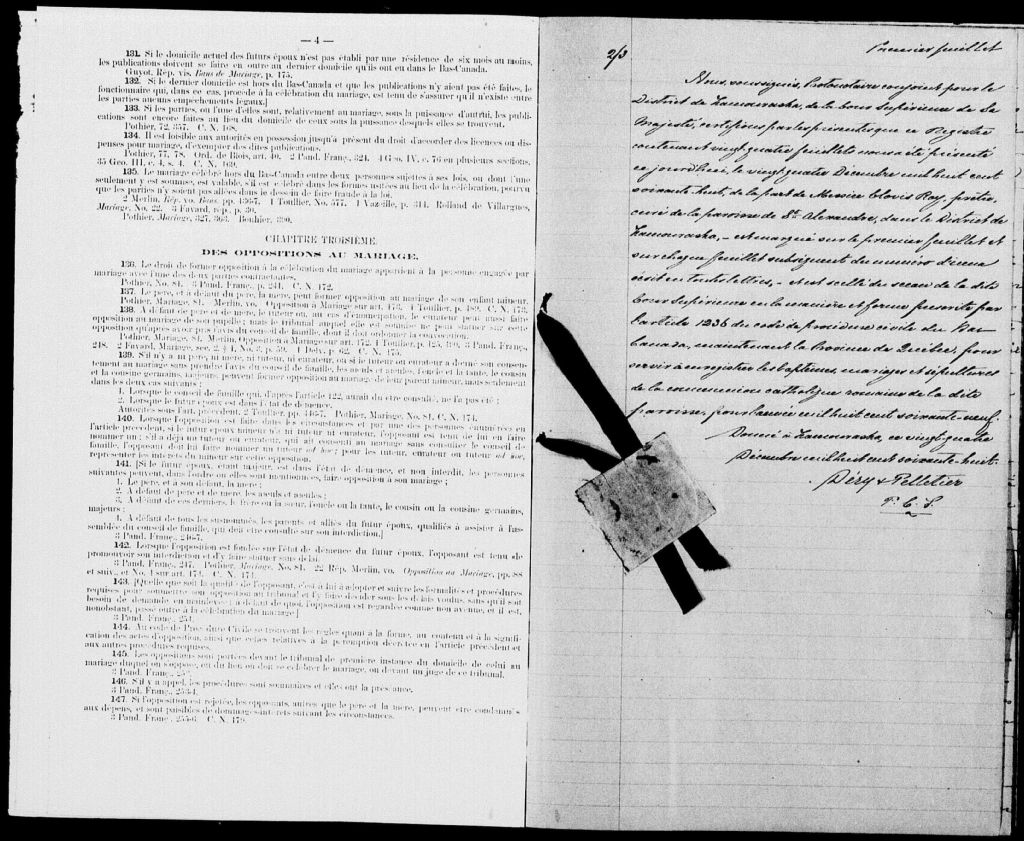 — 4 —
131. Si le domicile actuel des futurs époux n'est pas établi par une résidence de six mois au moins,
les publications doivent se faire en outre au dernier domicile qu'ils ont eu dans le Bas-Canada.
Guyot. Rép. vis. Bans de Mariage, p. 175.
132. Si le dernier domicile est hors du Bas-Canada et que les publications n'y aient pas été faites, le
fonctionnaire qui, dans ce cas, procède à la célébration du mariage, est tenu de s'assurer qu'il n'existe entre
les parties aucuns empêchements légaux.]
133. Si les parties, ou l'une d'elles sont, relativement au mariage, sous la puissance d'autrui, les publi-
cations sont encore faites au lieu du domicile de ceux sous la puissance desquels elles se trouvent.
Pothier, 72, 357. C. N. 168.
134. Il est loisible aux autorités en possession jusqu'à présent du droit d'accorder des licences ou dis-
penses pour mariage, d'exempter des dites publications.
Pothier, 77, 78. Ord. de Blois, art. 40. 2 Pand. Franç., 324. 4 Geo. IV, c. 76 en plusieurs sections,
35 Geo. III, c. 4, s. 4. C. N. 169.
135. Le mariage célébré hors du Bas-Canada entre deux personnes sujettes à ses lois, ou dont l'une
seulement y est soumise, est valable, s'il est célébré dans les formes usitées au lieu de la célébration, pourvu
que les parties n'y soient pas allées dans le dessein de faire fraude à la loi.
2 Merlin, Rép. vo. Bans, pp. 436-7. 1 Toullier, No. 577. 1 Vazeille, p. 314. Rolland de Villargues,
Mariage, No. 22. 3 Favard, rép. p. 30.
Pothier, Mariage, 327, 363. Bouhier, 390.
CHAPITRE TROISIÈME.
DES OPPOSITIONS AU MARIAGE.
136. Le droit de former opposition à la célébration du mariage appartient à la personne engagée par
mariage avec l'une des deux parties contractantes.
Pothier, No. 81. 3 Pand. Franç., p. 241. C. N. 172.
137. Le père, et à défaut du père, la mère, peut former opposition au mariage de son enfant mineur.
Pothier, Mariage, 81. Merlin, vo. Opposition à Mariage sur art. 173. 4 Toullier, p. 489. C. N. 173.
138. A défaut de père et de mère, le tuteur ou, au cas d'émancipation, le curateur peut aussi faire
opposition au mariage de son pupille; mais le tribunal auquel elle est soumise ne peut statuer sur cette
opposition qu'après avoir pris l'avis du conseil de famille, dont il doit ordonner la convocation.
Pothier, Mariage, 81. Merlin, Opposition à Mariage sur art. 172. 1 Toullier, p. 125, 489. 3 Pand. Franç.,
248. 2 Favard, Mariage, sec. 2, § 4, No. 3, p. 59. 1 Delv., p. 62. C. N. 175.
139. S'il n'y a ni père, ni mère, ni tuteur, ni curateur, ou si le tuteur ou curateur a donné son consen-
tement au mariage sans prendre l'avis du conseil de famille, les aïeuls et aïeules, l'oncle et la tante, le cousin
et la cousine germains, majeurs, peuvent former opposition au mariage de leur parent mineur, mais seulement
dans les deux cas suivants :
1. Lorsque le conseil de famille qui, d'après l'article 122, aurait dû être consulté, ne l'a pas été ;
2. Lorsque le futur époux est dans l'état de démence.
Autorités sous l'art. précédent. 2 Toullier, pp. 446-7. Pothier, Mariage, No. 81. C. N. 174.
140. Lorsque l'opposition est faite dans les circonstances et par une des personnes énumérées en
l'article précédent, si le futur époux mineur n'a ni tuteur ni curateur, l'opposant est tenu de lui en faire
nommer un ; s'il a déjà un tuteur ou curateur, qui ait consenti au mariage sans consulter le conseil de
famille, l'opposant doit lui faire nommer un tuteur ad hoc ; pour les tuteur, curateur ou tuteur ad hoc,
représenter les intérêts du mineur sur cette opposition.
141. [Si le futur époux, étant majeur, est dans l'état de démence, et non interdit, les personnes
suivantes peuvent, dans l'ordre où elles sont mentionnées, faire opposition à son mariage ;
1. Le père, et à son défaut, la mère ;
2. A défaut de père et de mère, les aïeuls et aïeules ;
3. A défaut de ces derniers, le frère ou la sœur, l'oncle ou la tante, le cousin ou la cousine germains,
majeurs ;
4. A défaut de tous les susnommés, les parents et alliés du futur époux, qualifiés à assister à l'as-
semblée du conseil de famille, qui doit être consulté sur son interdiction.]
3 Pand. Franç., 246-7.
142. Lorsque l'opposition est fondée sur l'état de démence du futur époux, l'opposant est tenu de
promouvoir son interdiction et d'y faire statuer sans délai.
3 Pand. Franç., 247. Pothier, Mariage, No. 81. 22 Rép. Merlin, vo. Opposition au Mariage, pp. 88
et suiv., et No. 4 sur art. 174. C. N. 174.
143. [Quelle que soit la qualité de l'opposant, c'est à lui à adopter et suivre les formalités et procédures
requises pour soumettre son opposition au tribunal et l'y faire décider sous les délais voulus, sans qu'il soit
besoin de demande en mainlevée ; à défaut de quoi, l'opposition est regardée comme non avenue, et il est,
nonobstant, passé outre à la célébration du mariage.]
3 Pand. Franç., 254.
144. Au code de Procédure Civile se trouvent les règles quant à la forme, au contenu et à la signifi-
cation des actes d'opposition, ainsi que celles relatives à la péremption décrétée en l'article précédent et
aux autres procédures requises.
145. Les oppositions sont portées devant le tribunal de première instance du domicile de celui au
mariage duquel on s'oppose, ou du lieu où doit se célébrer le mariage, ou devant un juge de ce tribunal.
3 Pand. Franç.
146. S'il y a appel, les procédures sont sommaires et elles ont la préséance.
3 Pand. Franç., 253-4.
147. Si l'opposition est rejetée, les opposants, autres que le père et la mère, peuvent être condamnés
aux dépens, et sont passibles de dommages-intérêts suivant les circonstances.
3 Pand. Franç., 255-6. C. N. 179.
2/3
Premier feuillet
Nous, soussignés, Protonotaire conjoint pour le
District de Kamouraska, de la Cour Supérieure de Sa
Majesté, certifions par les présentes que ce Registre
contenant vingt quatre feuillets nous a été présenté
ce jourd'hui, le vingt quatre Décembre mil huit cent
soixante-huit, de la part de Messire Clovis Roy, prêtre,
curé de la paroisse de St. Alexandre, dans le District de
Kamouraska, - est marqué sur le premier feuillet et
sur chaque feuillet subséquent du numéro d'iceux
écrit en toutes lettres, - et est scellé du sceau de la dite
Cour Supérieure en la manière et forme prescrite par
l'article 1236 du code de procédure civile du Bas
Canada, maintenant la Province de Québec, pour
servir à enregistrer les baptêmes, mariages et sépultures
de la communion catholique romaine de la dite
paroisse, pour l'année mil huit cent soixante-neuf.
Donné à Kamouraska, ce vingt-quatre
Décembre mil huit cent soixante-huit.
Déry & Pelletier
P. C. S.